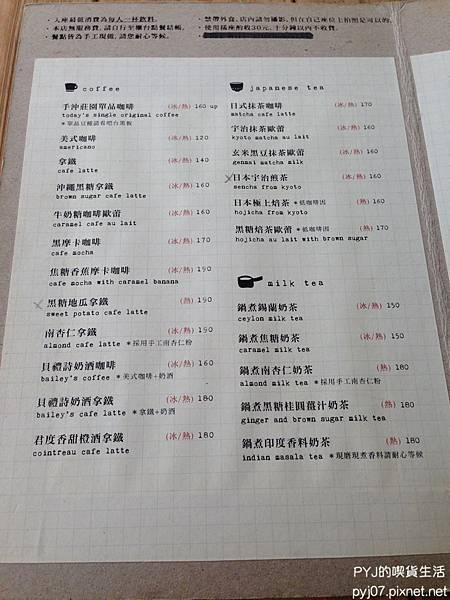 ・入座最低消費為每人一杯飲料。
・本店無服務費, 請自行至櫃台點餐結帳。
・餐點皆為手工現做, 請您耐心等候。
・禁帶外食, 店內請勿攝影, 但在自己座位上拍照是可以的。
・使用插座酌收30元, 十分鐘以內不收費。
coffee
手沖莊園單品咖啡 (冰/熱) 160 up
today's single original coffee
＊單品豆種請看吧台黑板
美式咖啡 (冰/熱) 120
americano
拿鐵 (冰/熱) 140
cafe latte
沖繩黑糖拿鐵 (冰/熱) 160
brown sugar cafe latte
牛奶糖咖啡歐蕾 (冰/熱) 160
caramel cafe au lait
黑摩卡咖啡 (冰/熱) 170
cafe mocha
焦糖香蕉摩卡咖啡 (冰/熱) 190
cafe mocha with caramel banana
黑糖地瓜拿鐵 (熱) 190
sweet potato cafe latte
南杏仁拿鐵 (冰/熱) 190
almond cafe latte ＊採用手工南杏仁粉
貝禮詩奶酒咖啡 (冰/熱) 160
bailey's coffee ＊美式咖啡+奶酒
貝禮詩奶酒拿鐵 (冰/熱) 180
bailey's cafe latte ＊拿鐵+奶酒
君度香甜橙酒拿鐵 (冰/熱) 180
cointreau cafe latte
japanese tea
日式抹茶咖啡 (冰/熱) 170
matcha cafe latte
宇治抹茶歐蕾 (冰/熱) 160
kyoto matcha au lait
玄米黑豆抹茶歐蕾 (冰/熱) 160
genmai matcha milk
日本宇治煎茶 (冰/熱) 160
sencha from kyoto
日本極上焙茶 ＊低咖啡因 (熱) 160
hojicha from kyoto
黑糖焙茶歐蕾 ＊低咖啡因 (冰/熱) 170
hojicha au lait with brown sugar
milk tea
鍋煮錫蘭奶茶 (冰/熱) 150
ceylon milk tea
鍋煮焦糖奶茶 (冰/熱) 150
caramel milk tea
鍋煮南杏仁奶茶 (冰/熱) 180
almond milk tea ＊採用手工南杏仁粉
鍋煮黑糖桂圓薑汁奶茶 (熱) 180
ginger and brown sugar milk tea
鍋煮印度香料奶茶 (熱) 180
indian masala tea ＊現磨現煮香料請耐心等候
PYJ的喫貨生活
pyj07.pixnet.net